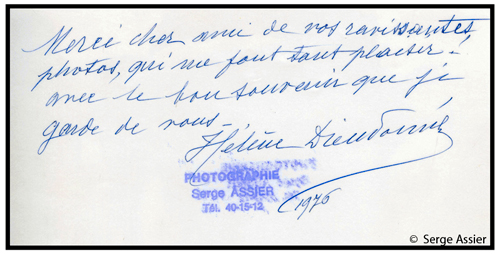 Merci cher ami de vos ravissantes
photos, qui me font tant plaisir !
avec le bon souvenir que j'ai
garde de vous -
Hélène Dieudonné
PHOTOGRAPHIE
Serge ASSIER
Tél. 40-15-12
1976
© Serge Assier